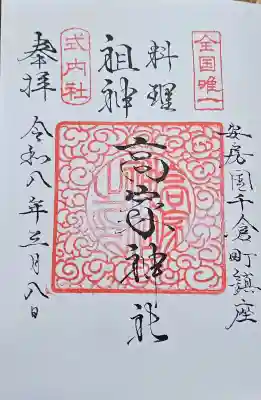 全国唯一
安房国千倉町鎮座
料理
祖神
高家神社
式内社
奉拝
令和八年三月八日